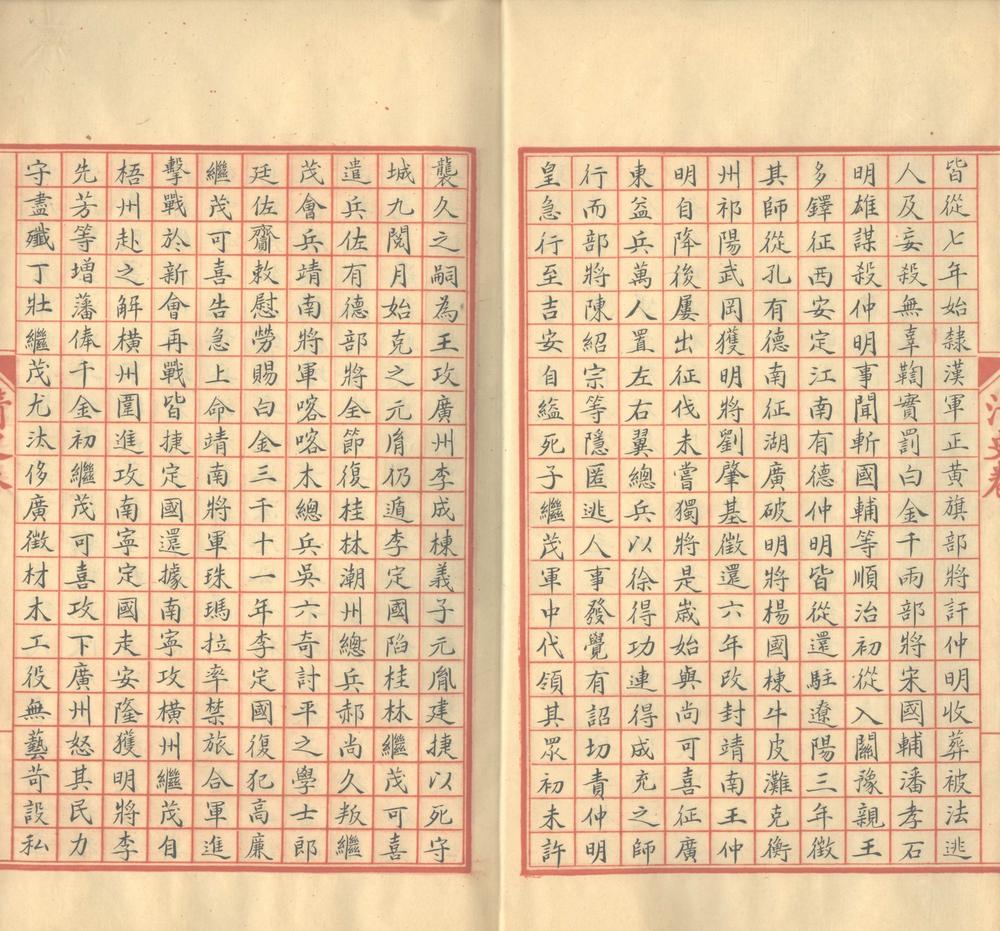 皆從七年始隸漢軍正黃旗部將訐仲明收葬被法逃
人及妄殺無辜鞫實罰白金千兩部將宋國輔潘孝石
明雄謀殺仲明事聞斬國輔等順治初從入關豫親王
多鐸征西安定江南有德仲明皆從還駐遼陽三年徵
其師從孔有德南征湖廣破明將楊國棟牛皮灘克衡
州祁陽武岡獲明將劉肇基徵還六年改封靖南王仲
明自降後屢出征伐未嘗獨將是歲始與尚可喜征廣
東益兵萬人置左右翼總兵以徐得功連得成充之師
行而部將陳紹宗等隱匿逃人事發覺有詔切責仲明
皇急行至吉安自縊死子繼茂軍中代領其眾初未許
襲久之嗣為王攻廣州李成棟義子元胤建捷以死守
城九閱月始克之元胤仍遁李定國陷桂林繼茂可喜
遣兵佐有德部將全節復桂林潮州總兵郝尚久叛繼
茂會兵靖南將軍喀喀木總兵吳六奇討平之學士郎
廷佐齎敕慰勞賜白金三千十一年李定國復犯高廉
繼茂可喜告急上命靖南將軍珠瑪拉率禁旅合軍進
擊戰於新會再戰皆捷定國還據南寧攻橫州繼茂自
梧州赴之解橫州圍進攻南寧定國走安隆獲明將李
先芳等增藩俸千金初繼茂可喜攻下廣州怒其民力
守盡殲丁壯繼茂尤汰侈廣徵材木工役無藝苛設私